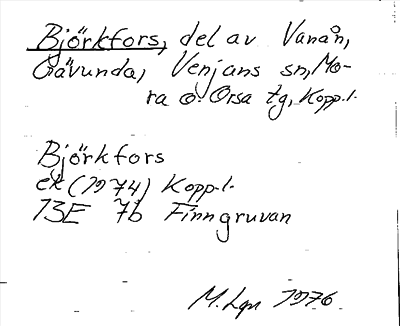 Björkfors, del av Vanån,
Gävunda, Venjans sn, Mo-
ra o. Orsa tg, Kopp.l.
Björkfors
ek (1974) Kopp.l.
13E 7b Finngruvan
M. Lgn 1976.